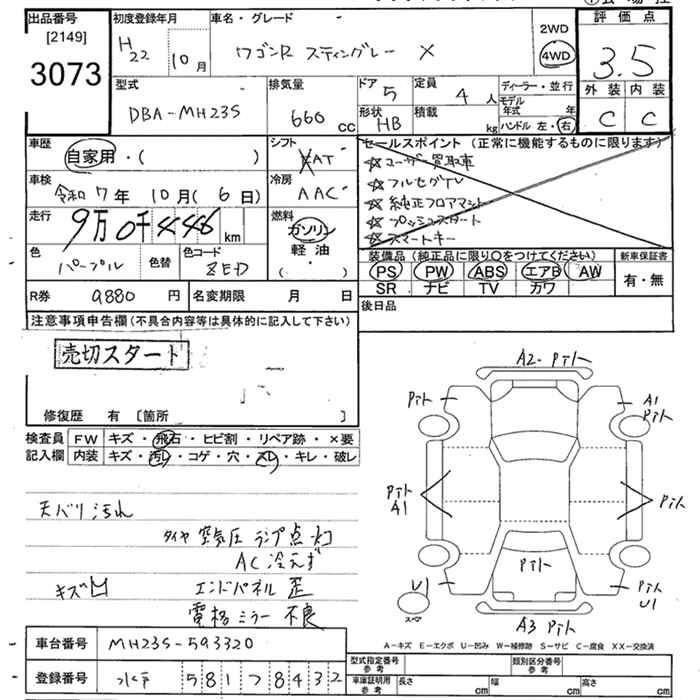 出品番号
[2149]
3073
初度登録年月
H22 10月
車名・グレード
ワゴンR スティングレー X
2WD
4WD
評価点
3.5
外装 内装
C C
型式
DBA-MH23S
排気量
660 CC
ドア 5
形状 HB
定員 4 人
積載 kg
ディーラー・並行
モデル年式 年
ハンドル 左・右
車歴
自家用・( )
シフト
FAT
セールスポイント (正常に機能するものに限ります)
☆ユーザー買取車
☆フルセグTV
☆純正フロアマット
☆プッシュスタート
☆スマートキー
車検
令和7年 10月(6日)
冷房
AAC
走行
9万0千446km
燃料
ガソリン
軽油
( ・ )
色
パープル
色替
色コード
ZED
装備品 (純正品に限り○をつけてください)
PS PW ABS エアB AW
SR ナビ TV カワ
新車保証書
有・無
R券 9880 円
名変期限 月 日
後日品
注意事項申告欄(不具合内容等は具体的に記入して下さい)
売切スタート
修復歴 有 [箇所 ]
検査員 FW キズ・飛石・ヒビ割・リペア跡・×要
記入欄 内装 キズ・汚レ・コゲ・穴・スレ・キレ・破レ
天バリ汚れ
タイヤ空気圧ランプ点灯
AC冷えず
キズ凹
エンドパネル歪
電格ミラー不良
A2- Pit
Pit
A1 Pit
Pit A1
Pit
Pit
U1
Pit U1
スペア
A3 Pit
A-キズ E-エクボ U-凹み W-補修跡 S-サビ C-腐食 XX-交換済
車台番号 MH23S-593320
登録番号 水戸 581 つ 8432
型式指定番号 参考
類別区分番号 参考
車庫証明用 参考 長さ cm 幅 cm 高さ cm